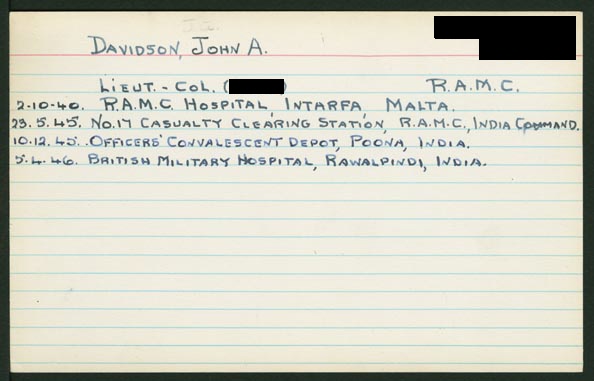 DAVIDSON, JOHN A.
LIEUT.-COL. ( ) R.A.M.C.
2-10-40. R.A.M.C. HOSPITAL, INTARFA, MALTA.
23.5.45. NO.17 CASUALTY CLEARING STATION, R.A.M.C., INDIA COMMAND.
10.12.45. OFFICERS' CONVALESCENT DEPOT, POONA, INDIA.
5.4.46. BRITISH MILITARY HOSPITAL, RAWALPINDI, INDIA.